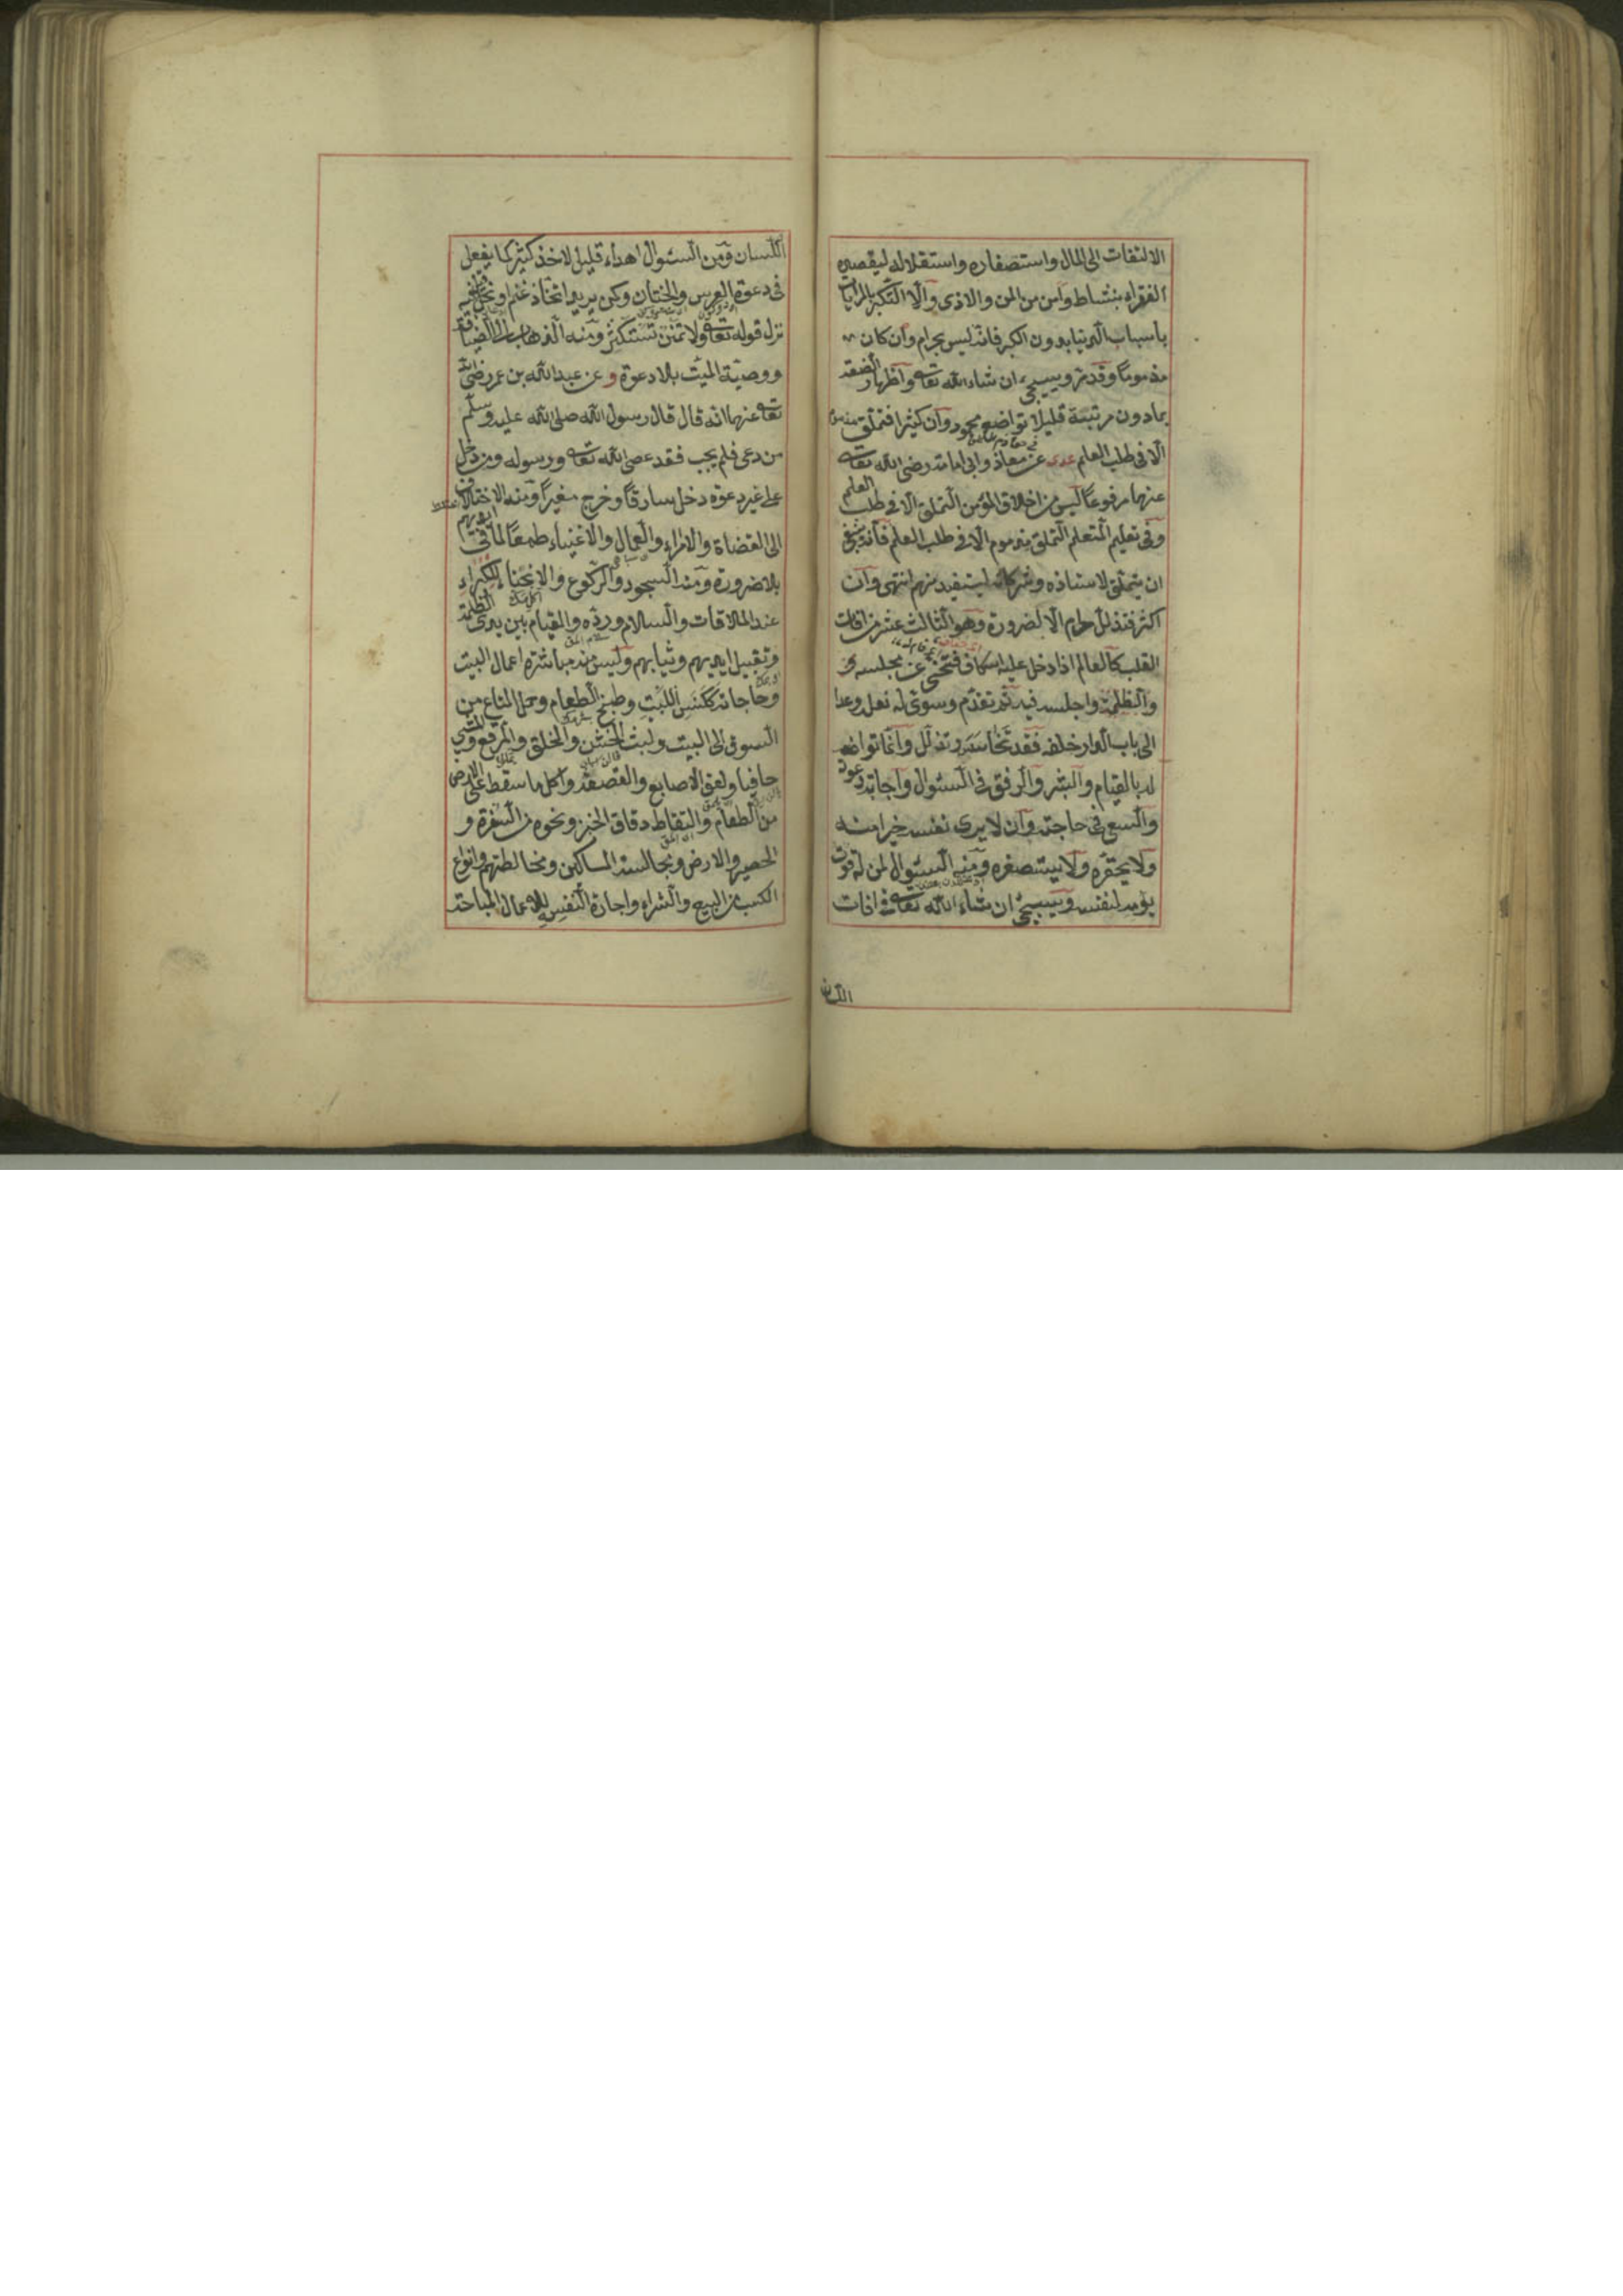 الالتفات الى المال واستصغاره واستقلاله ليقصده
الفقراء بنشاط وامن من المن والاذى والا التكبر بالمرايات
باسباب الدنيا بدون الكبر فانه ليس بحرام وان كان
مذموما وقد مر وسيجئ ان شاء الله تعالى واظهار الضعة
بما دون مرتبته قليلا تواضع محمود وان كثيرا فتملق مذموم
الا فى طلب العلم عدى عن معاذ وابى امامة رضى الله تعالى
عنهما مرفوعا ليس من اخلاق المؤمن التملق الا فى طلب العلم
وفى تعليم المتعلم التملق مذموم الا فى طلب العلم فانه ينبغى
ان يتملق لاستاذه وشركائه ليستفيد منهم انتهى وان
اكثر فتذلل حرام الا لضرورة وهو الثالث عشر من افات
القلب كالعالم اذا دخل عليه اسكاف فتنحى عن مجلسه
واجلسه فيه ثم تقدم وسوى له نعله وعدا
الى باب الدار خلفه فقد تخاسس وتذلل وانما تواضعه
له بالقيام والبشر والرفق فى السؤال واجابة دعوة
والسعى فى حاجته وان لا يرى نفسه خيرا منه
ولا يحقره ولا يستصغره ومنه السؤال لمن له قوت
يومه لنفسه وسيجئ ان شاء الله تعالى فى افات
اللسان
اللسان ومن السؤال اهداء قليل لاخذ كثير كما يفعل
فى دعوة العرس والختان وكمن يريد اتخاذ غنم او نحل فيه
نزل قوله تعالى ولا تمنن تستكثر ومنه الذهاب الى الضيافة
ووصية الميت بلا دعوة و عن عبد الله بن عمر رضى الله
تعالى عنهما انه قال قال رسول الله صلى الله عليه وسلم
من دعى فلم يجب فقد عصى الله تعالى ورسوله ومن دخل
على غير دعوة دخل سارقا وخرج مغيرا ومنه الاختلاف
الى القضاة والامراء والعمال والاغنياء طمعا لما فى ايديهم
بلا ضرورة ومنه السجود والركوع والانحناء للكبراء
عند الملاقات والسلام ورده والقيام بين يدى الظلمة
وتقبيل ايديهم وثيابهم وليس منه مباشرة اعمال البيت
وحاجاته ككنس البيت وطبخ الطعام وحمل المتاع من
السوق الى البيت ولبس الخشن والخلق والمرقع والمشى
حافيا ولعق الاصابع والقصعة واكل ما سقط على الارض
من الطعام والتقاط دقاق الخبز ونحوه من السفرة و
الحصير والارض ومجالسة المساكين ومخالطتهم وانواع
الكسب من البيع والشراء واجارة النفس للاعمال المباحة